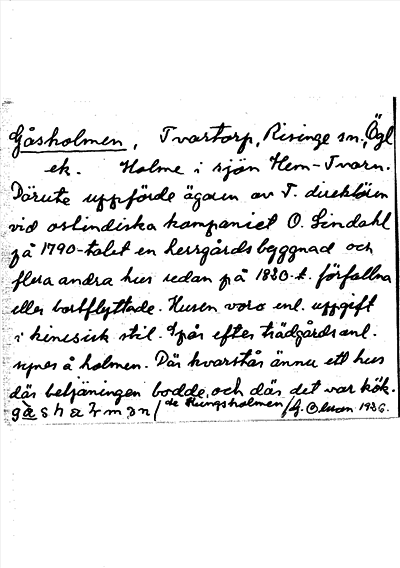 Gåsholmen, Tvartorp, Risinge sn, Ögl
ek. Holme i sjön Hem-Tvarn.
Därute uppförde ägaren av T. direktören
vid ostindiska kompaniet O. Lindahl
på 1790-talet en herrgårdsbyggnad och
flera andra hus redan på 1830-t. förfallna
eller bortflyttade. Husen voro enl. uppgift
i kinesisk stil. Spår efter trädgårdsanl.
synes å holmen. Där kvarstår ännu ett hus
där betjäningen bodde, och där det var kök.
/de Kungsholmen/ G. Olsson 1936.